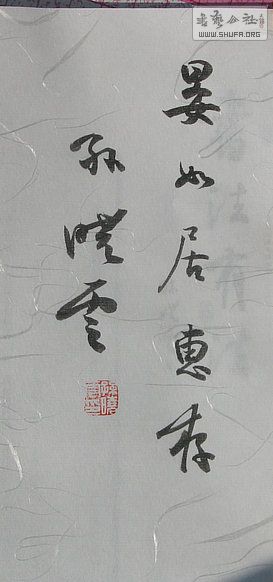 書藝公社
WWW.SHUFA.ORG
晏如居惠存
孙曉雲